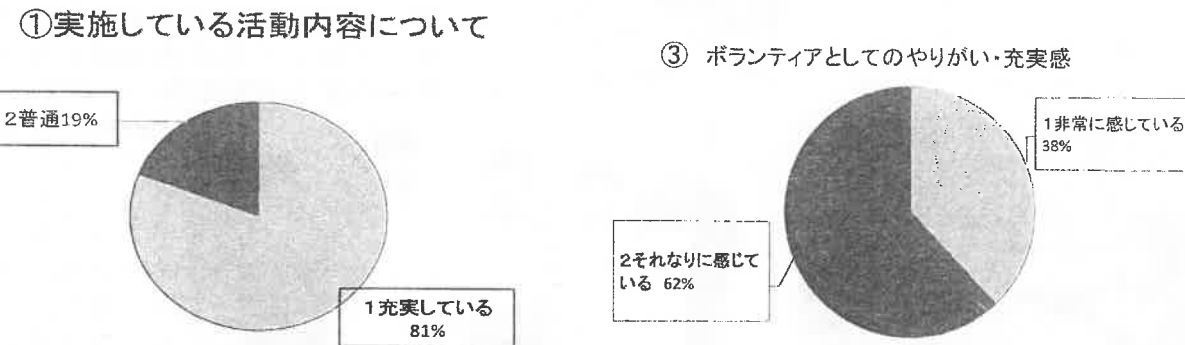 ①実施している活動内容について
2普通19%
1充実している
81%
③ ボランティアとしてのやりがい・充実感
1非常に感じている
38%
2それなりに感じて
いる 62%